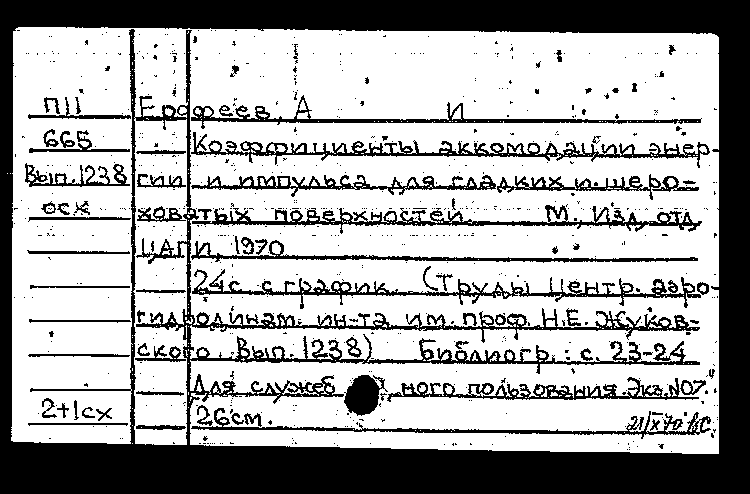 П11 Ерофеев, А И
665 Коэффициенты аккомодации энер-
Вып. 1238 гии и импульса для гладких и шеро-
осх ховатых поверхностей. М., Изд. отд.
ЦАГИ, 1970
24с. с график. (Труды Центр. аэро-
гидродинам. ин-та им. проф. Н.Е. Жуков-
ского. Вып. 1238) Библиогр.: с. 23-24
Для служебного пользования. Экз. №07.
2+1сх 26см. 21/X 70